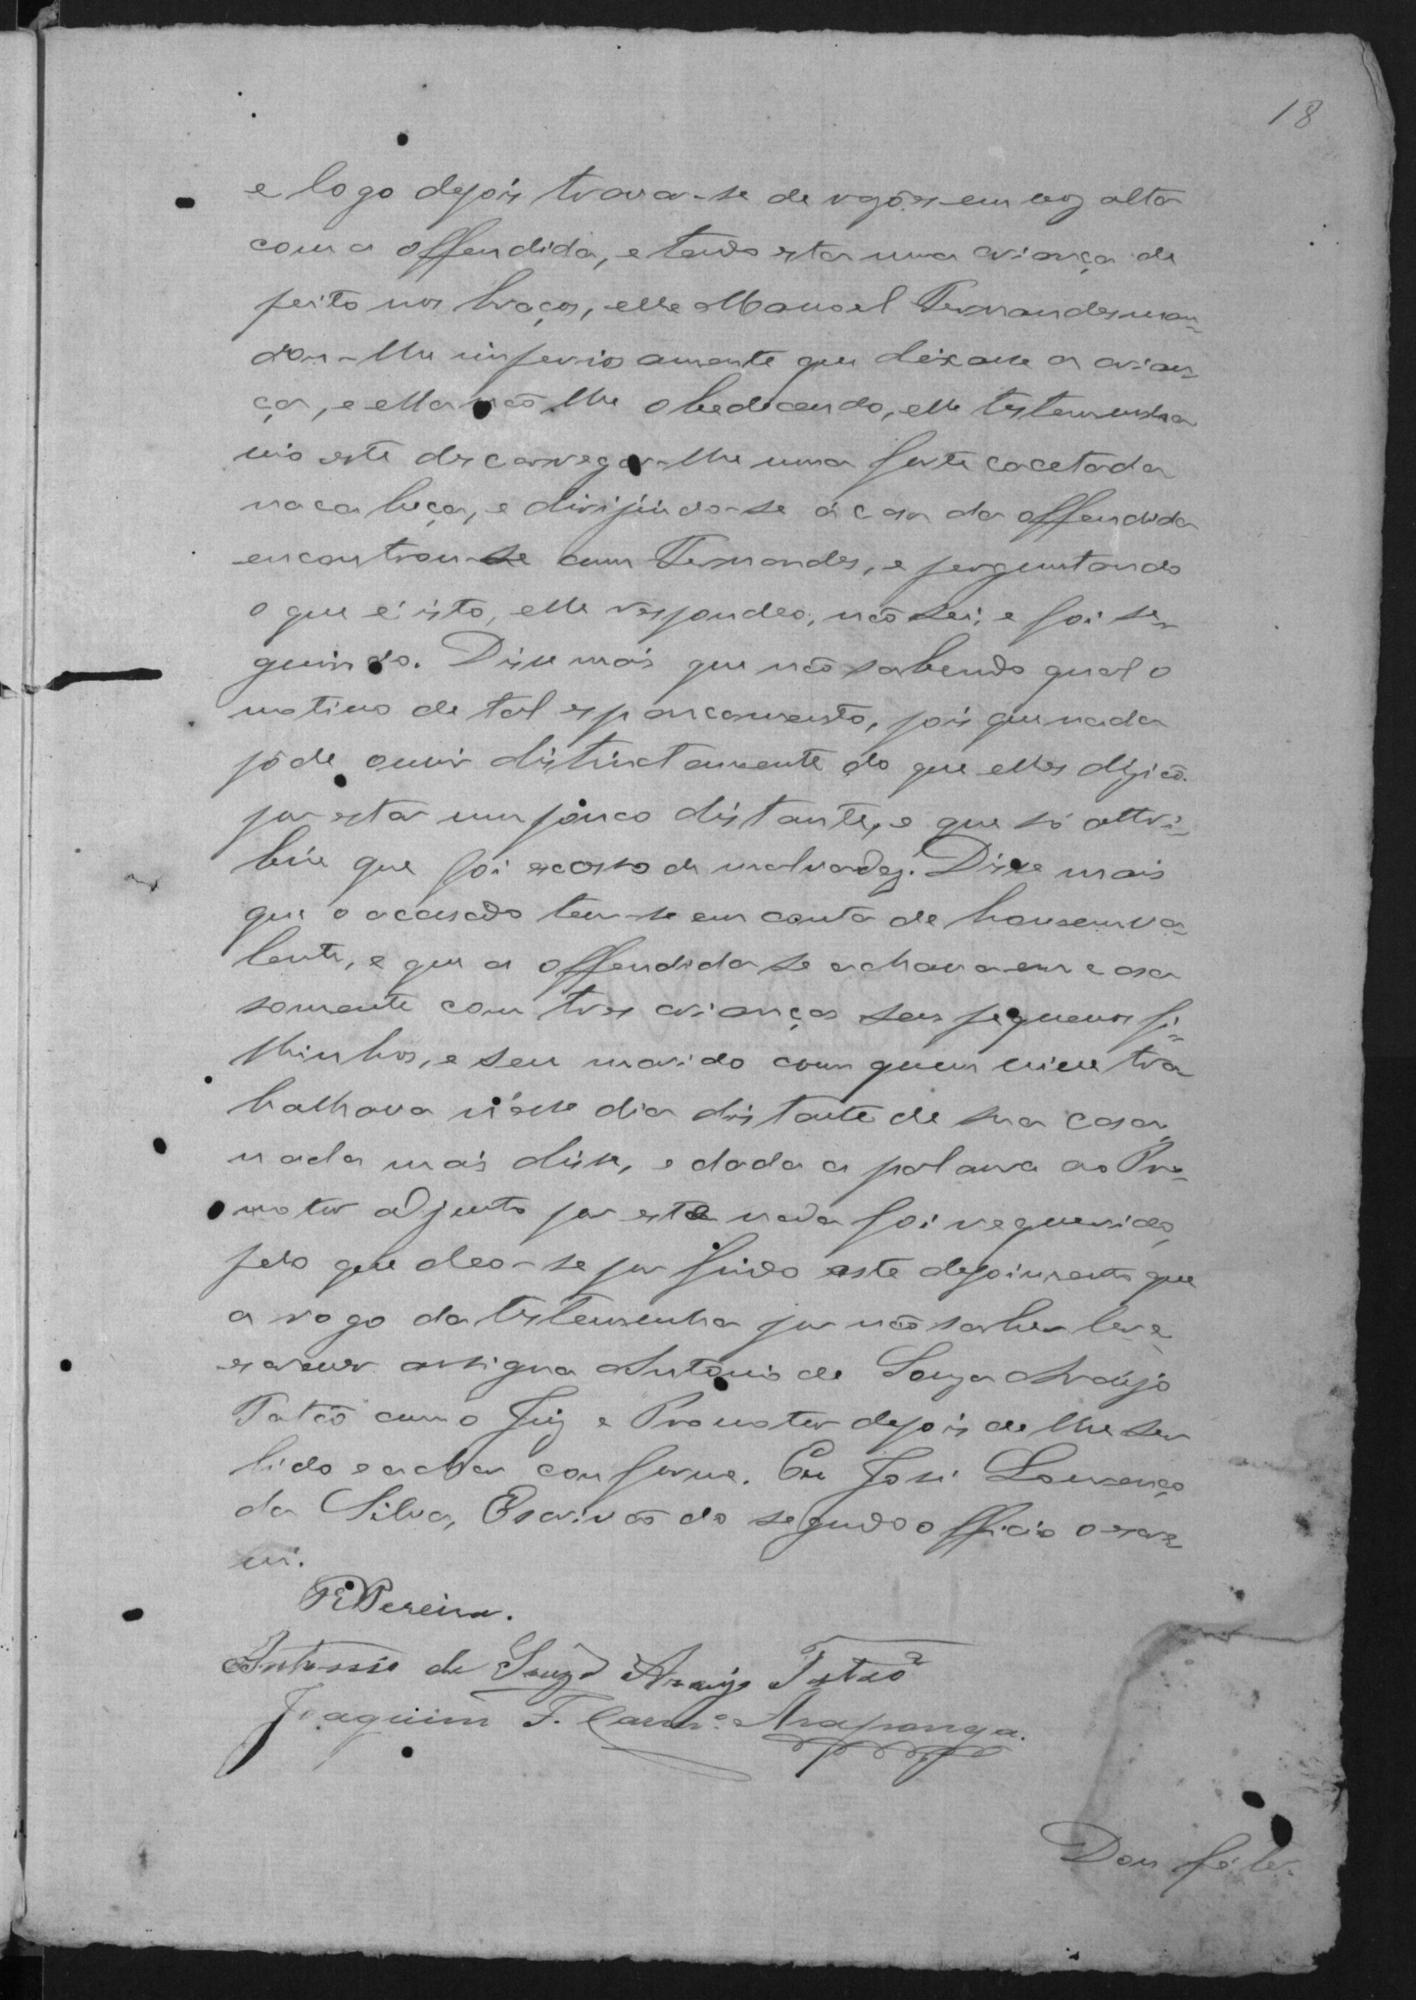 18
e logo depois travar-se de rasões em voz alta
com a offendida, e tendo esta uma criança de
peito nos braços, elle Manoel Fernandes man-
dou-lhe imperiosamente que deixasse a crian-
ça, e ella não lhe obedecendo, elle testemunha
vio este descarregar-lhe uma forte cacetada
na cabeça, e dirijindo-se á casa da offendida
encontrou-se com Fernandes, e perguntando
o que é isto, elle respondeo, não sei, e foi se-
guindo. Disse mais que não sabendo qual o
motivo de tal espancamento, pois que nada
pôde ouvir distinctamente do que elles dizião
por estar um pouco distante, e que só attri-
bue que foi de malvadez. Disse mais
que o acusado tem-se em conta de homem va-
lente, e que a offendida se achava em casa
somente com tres crianças seus pequenos fi-
lhinhos, e seu marido com quem vive tra
balhava n'esse dia distante de sua casa,
nada mais disse, e dada a palavra ao Pro-
motor adjunto por este nada foi requerido,
pelo que deo-se por findo este depoimento que
a rogo da testemunha por não saber ler e
escrever assigna Antonio de Souza Araújo
Tatão com o Juiz e Promotor depois de lhe ser
lido e achar conforme. Eu José Lourenço
da Silva, Escrivão do segundo officio o escre
vi.
Pereira.
Antonio de Souza Araujo Tatão
Joaquim F. Carnº Araponga.
Dou fé.